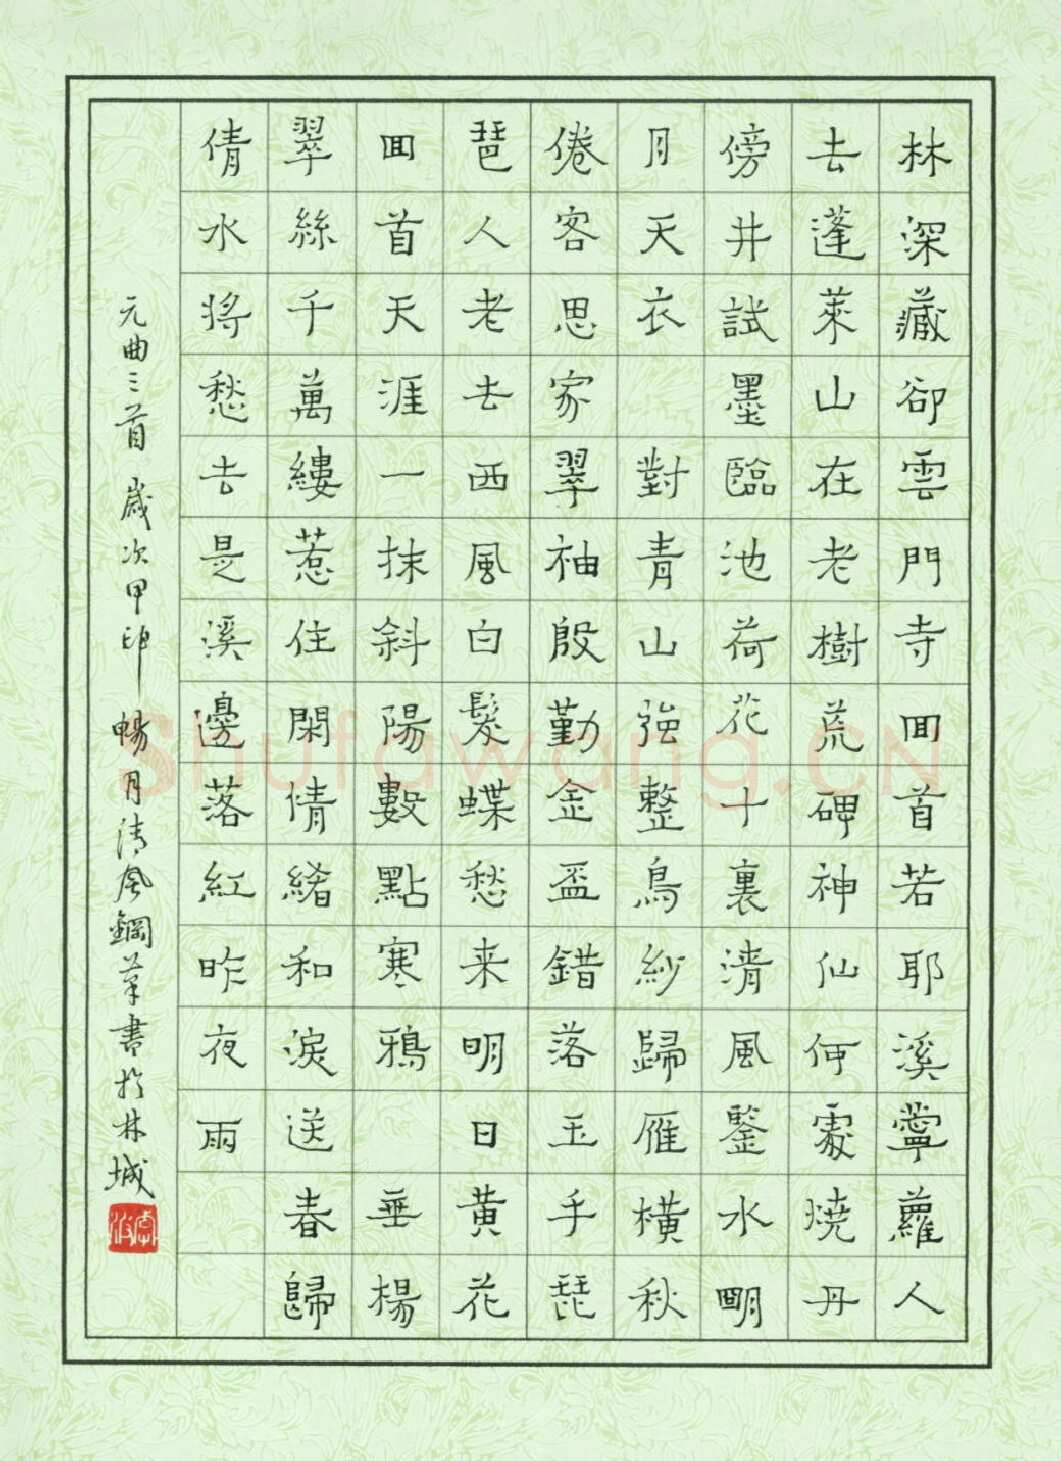 林深藏卻雲門寺囬首若耶溪薴蘿人
去蓬萊山在老樹荒碑神仙何處燒丹
傍井試墨臨池荷花十裏清風鑒水朙
月天衣 對青山強整烏紗歸雁橫秋
倦客思家翠袖殷勤金盃錯落玉手琵
琶人老去西風白髮蝶愁来明日黃花
囬首天涯一抹斜陽數點寒鴉 垂楊
翠絲千萬縷惹住閑情緒和淚送春歸
倩水將愁去是溪邊落紅昨夜雨
元曲三首 歲次甲卯暢月清風鋼筆書於林城
Shufawang.CN